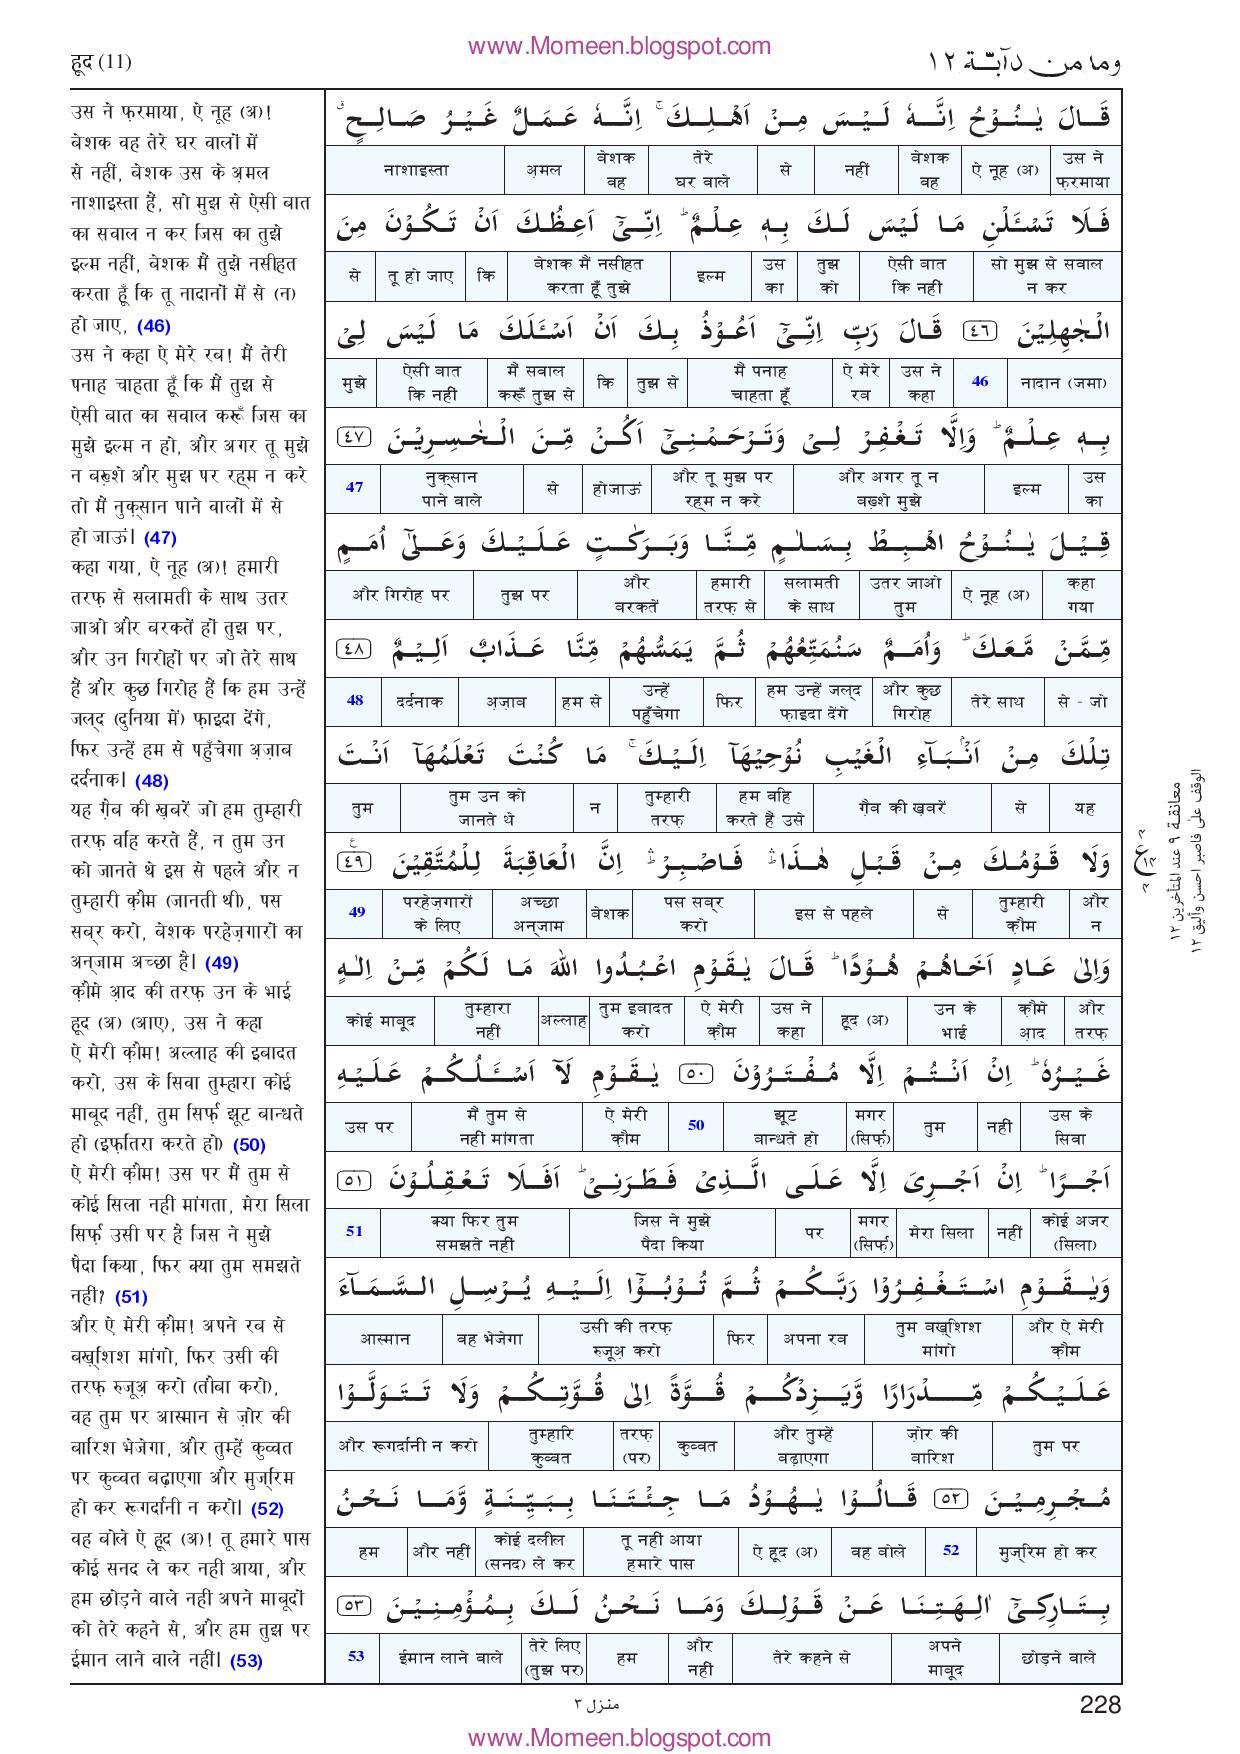 www.Momeen.blogspot.com
हूद (11)
وما من دآبّة ١٢
उस ने फ़रमाया, ऐ नूह (अ)!
बेशक वह तेरे घर वालों में
से नहीं, बेशक उस के अ़मल
नाशाइस्ता हैं, सो मुझ से ऐसी बात
का सवाल न कर जिस का तुझे
इल्म नहीं, बेशक मैं तुझे नसीहत
करता हूँ कि तू नादानों में से (न)
हो जाए, (46)
उस ने कहा ऐ मेरे रब! मैं तेरी
पनाह चाहता हूँ कि मैं तुझ से
ऐसी बात का सवाल करूँ जिस का
मुझे इल्म न हो, और अगर तू मुझे
न बख़्शे और मुझ पर रहम न करे
तो मैं नुक़्सान पाने वालों में से
हो जाऊं। (47)
कहा गया, ऐ नूह (अ)! हमारी
तरफ़ से सलामती के साथ उतर
जाओ और बरकतें हों तुझ पर,
और उन गिरोहों पर जो तेरे साथ
हैं और कुछ गिरोह हैं कि हम उन्हें
जल्द (दुनिया में) फ़ाइदा देंगे,
फिर उन्हें हम से पहुँचेगा अ़ज़ाब
दर्दनाक। (48)
यह ग़ैब की ख़बरें जो हम तुम्हारी
तरफ़ वहि करते हैं, न तुम उन
को जानते थे इस से पहले और न
तुम्हारी क़ौम (जानती थी), पस
सब्र करो, बेशक परहेज़गारों का
अन्जाम अच्छा है। (49)
क़ौमे आ़द की तरफ़ उन के भाई
हूद (अ) (आए), उस ने कहा
ऐ मेरी क़ौम! अल्लाह की इबादत
करो, उस के सिवा तुम्हारा कोई
माबूद नहीं, तुम सिर्फ़ झूट बान्धते
हो (इफ़्तिरा करते हो) (50)
ऐ मेरी क़ौम! उस पर मैं तुम से
कोई सिला नहीं मांगता, मेरा सिला
सिर्फ़ उसी पर है जिस ने मुझे
पैदा किया, फिर क्या तुम समझते
नहीं? (51)
और ऐ मेरी क़ौम! अपने रब से
बख़्शिश मांगो, फिर उसी की
तरफ़ रुजूअ़ करो (तौबा करो),
वह तुम पर आस्मान से ज़ोर की
बारिश भेजेगा, और तुम्हें कुव्वत
पर कुव्वत बढ़ाएगा और मुज्रिम
हो कर रूगर्दानी न करो। (52)
वह बोले ऐ हूद (अ)! तू हमारे पास
कोई सनद ले कर नहीं आया, और
हम छोड़ने वाले नहीं अपने माबूदों
को तेरे कहने से, और हम तुझ पर
ईमान लाने वाले नहीं। (53)
قَالَ يٰنُوْحُ اِنَّهٗ لَيْسَ مِنْ اَهْلِكَ ۚ اِنَّهٗ عَمَلٌ غَيْرُ صَالِحٍ ۖ
उस ने फ़रमाया ऐ नूह (अ) बेशक वह नहीं से तेरे घर वाले बेशक वह अ़मल नाशाइस्ता
فَلَا تَسْـَٔلْنِ مَا لَيْسَ لَكَ بِهٖ عِلْمٌ ؕ اِنِّىْٓ اَعِظُكَ اَنْ تَكُوْنَ مِنَ
सो मुझ से सवाल न कर ऐसी बात कि नहीं तुझ को उस का इल्म बेशक मैं नसीहत करता हूँ तुझे कि तू हो जाए से
الْجٰهِلِيْنَ ٤٦ قَالَ رَبِّ اِنِّىْٓ اَعُوْذُ بِكَ اَنْ اَسْـَٔلَكَ مَا لَيْسَ لِىْ
नादान (जमा) 46 उस ने कहा ऐ मेरे रब मैं पनाह चाहता हूँ तुझ से कि मैं सवाल करूँ तुझ से ऐसी बात कि नहीं मुझे
بِهٖ عِلْمٌ ؕ وَاِلَّا تَغْفِرْ لِىْ وَتَرْحَمْنِىْٓ اَكُنْ مِّنَ الْخٰسِرِيْنَ ٤٧
उस का इल्म और अगर तू न बख़्शे मुझे और तू मुझ पर रहम न करे होजाऊं से नुक़्सान पाने वाले 47
قِيْلَ يٰنُوْحُ اهْبِطْ بِسَلٰمٍ مِّنَّا وَبَرَكٰتٍ عَلَيْكَ وَعَلٰٓى اُمَمٍ
कहा गया ऐ नूह (अ) उतर जाओ तुम सलामती के साथ हमारी तरफ़ से और बरकतें तुझ पर और गिरोह पर
مِّمَّنْ مَّعَكَ ؕ وَاُمَمٌ سَنُمَتِّعُهُمْ ثُمَّ يَمَسُّهُمْ مِّنَّا عَذَابٌ اَلِيْمٌ ٤٨
से - जो तेरे साथ और कुछ गिरोह हम उन्हें जल्द फ़ाइदा देंगे फिर उन्हें पहुँचेगा हम से अ़ज़ाब दर्दनाक 48
تِلْكَ مِنْ اَنْۢبَآءِ الْغَيْبِ نُوْحِيْهَآ اِلَيْكَ ۚ مَا كُنْتَ تَعْلَمُهَآ اَنْتَ
यह से ग़ैब की ख़बरें हम वहि करते हैं उसे तुम्हारी तरफ़ न तुम उन को जानते थे तुम
وَلَا قَوْمُكَ مِنْ قَبْلِ هٰذَا ۛؕ فَاصْبِرْ ۛؕ اِنَّ الْعَاقِبَةَ لِلْمُتَّقِيْنَ ٤٩
और न तुम्हारी क़ौम से इस से पहले पस सब्र करो बेशक अच्छा अन्जाम परहेज़गारों के लिए 49
وَاِلٰى عَادٍ اَخَاهُمْ هُوْدًا ؕ قَالَ يٰقَوْمِ اعْبُدُوا اللّٰهَ مَا لَكُمْ مِّنْ اِلٰهٍ
और तरफ़ क़ौमे आ़द उन के भाई हूद (अ) उस ने कहा ऐ मेरी क़ौम तुम इबादत करो अल्लाह तुम्हारा नहीं कोई माबूद
غَيْرُهٗ ؕ اِنْ اَنْتُمْ اِلَّا مُفْتَرُوْنَ ٥٠ يٰقَوْمِ لَآ اَسْـَٔلُكُمْ عَلَيْهِ
उस के सिवा नहीं तुम मगर (सिर्फ़) झूट बान्धते हो 50 ऐ मेरी क़ौम मैं तुम से नहीं मांगता उस पर
اَجْرًا ؕ اِنْ اَجْرِىَ اِلَّا عَلَى الَّذِىْ فَطَرَنِىْ ؕ اَفَلَا تَعْقِلُوْنَ ٥١
कोई अजर (सिला) नहीं मेरा सिला मगर (सिर्फ़) पर जिस ने मुझे पैदा किया क्या फिर तुम समझते नहीं 51
وَيٰقَوْمِ اسْتَغْفِرُوْا رَبَّكُمْ ثُمَّ تُوْبُوْٓا اِلَيْهِ يُرْسِلِ السَّمَآءَ
और ऐ मेरी क़ौम तुम बख़्शिश मांगो अपना रब फिर उसी की तरफ़ रुजूअ़ करो वह भेजेगा आस्मान
عَلَيْكُمْ مِّدْرَارًا وَّيَزِدْكُمْ قُوَّةً اِلٰى قُوَّتِكُمْ وَلَا تَتَوَلَّوْا
तुम पर ज़ोर की बारिश और तुम्हें बढ़ाएगा कुव्वत तरफ़ (पर) तुम्हारि कुव्वत और रूगर्दानी न करो
مُجْرِمِيْنَ ٥٢ قَالُوْا يٰهُوْدُ مَا جِئْتَنَا بِبَيِّنَةٍ وَّمَا نَحْنُ
मुज्रिम हो कर 52 वह बोले ऐ हूद (अ) तू नहीं आया हमारे पास कोई दलील (सनद) ले कर और नहीं हम
بِتَارِكِىْٓ اٰلِهَتِنَا عَنْ قَوْلِكَ وَمَا نَحْنُ لَكَ بِمُؤْمِنِيْنَ ٥٣
छोड़ने वाले अपने माबूद तेरे कहने से और नहीं हम तेरे लिए (तुझ पर) ईमान लाने वाले 53
معانقة ٩ عند المتأخرين ١٢
الوقف على فاصبر احسن وأليق ١٢
منزل ٣
228
www.Momeen.blogspot.com